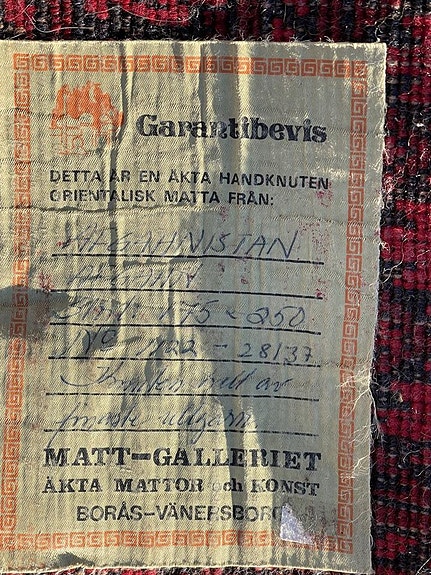 Garantibevis
DETTA ÄR EN ÄKTA HANDKNUTEN
ORIENTALISK MATTA FRÅN:
AFGHANISTAN
175 x 250
No 1122 - 28137
helt av
finaste ullgarn
MATT-GALLERIET
ÄKTA MATTOR och KONST
BORÅS-VÄNERSBORG